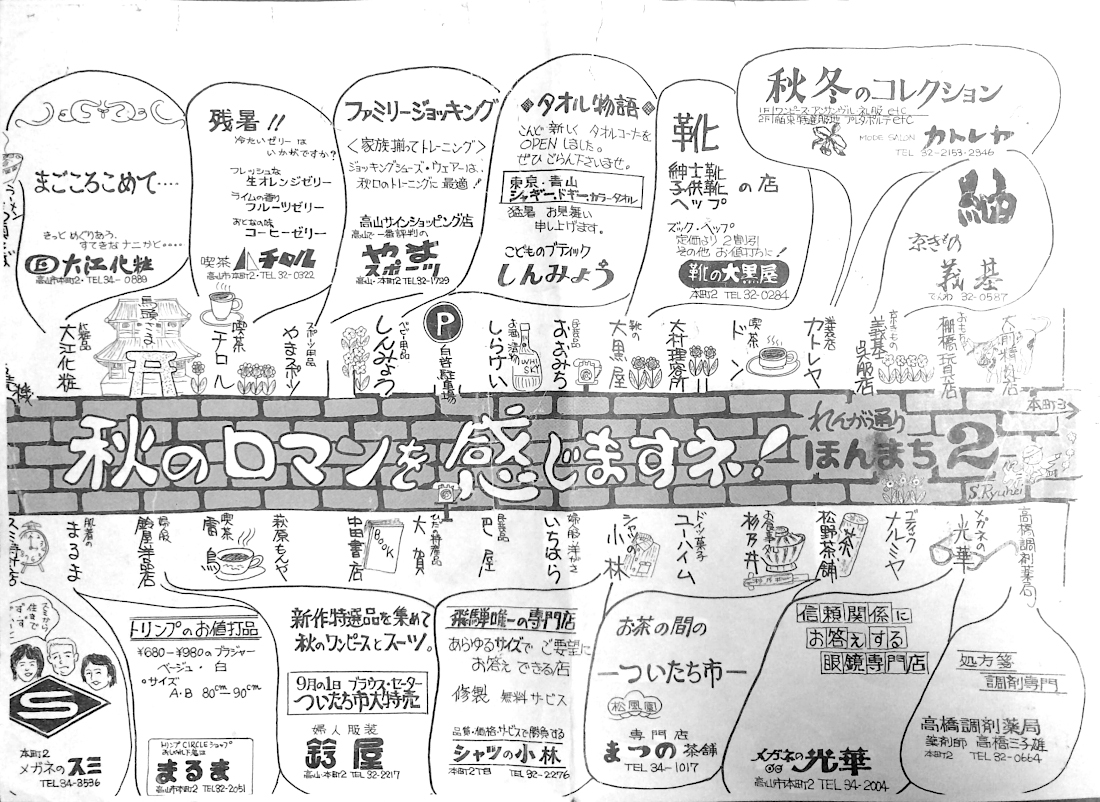 まごころこめて‥‥
きっと めぐりあう、
すてきな ナニかと‥‥
大江化粧
高山市本町2・TEL34-0889
残暑!!
冷たいゼリー は
いかがですか?
フレッシュな
生オレンジゼリー
ライムの香り
フルーツゼリー
おとなの味
コーヒーゼリー
喫茶 チロル
高山市本町2・TEL 32-0322
ファミリージョッキング
<家族揃ってトレーニング>
ジョッキングシューズ・ウェアーは、
秋口のトレーニングに最適!!
高山サインショッピング店
高山で一番評判の
やまスポーツ
高山・本町2 TEL 32-1729
タオル物語
こんど 新しく タオルコーナーを
OPEN しました。
ぜひ ごらん下さいませ。
東京・青山
シャギードギーカラータオル
猛暑 お見舞い
申し上げます。
こどものブティック
しんみょう
靴
紳士靴
子供靴 の店
ヘップ
ズック・ヘップ
定価より 2割引
その他 お値打ちに!
靴の大黒屋
本町2 TEL 32-0284
秋冬のコレクション
1F ワンピース・アンサンブル・礼服 etc
MODE SALON カトレヤ
TEL 32-2153・2346
紬
京きもの
義基
でんわ 32-0587
化粧品
大江化粧
喫茶
チロル
スポーツ用品
やまスポーツ
ベビー用品
しんみょう
P
自若駐車場
しらけい
WHISKY
民芸品
おおみち
靴の
大黒屋
大村理容所
喫茶
ドン
洋装店
カトレヤ
京きもの
義基呉服店
おもちゃの
棚橋玩具店
本町3
秋のロマンを感じますネ!
れんが通り
ほんまち2
S.Ryuhei
スミ時計店
肌着の
まるま
婦人服
鈴屋洋品店
喫茶
雷鳥
萩原もんや
田書店
BOOK
大賀
民芸品
巴屋
婦人服・洋かさ
いちはら
シャツの
小林
ドイツ菓子
ユーハイム
お食事処
杉乃井
松野茶舗
茶
ブティック
ナルミヤ
メガネの
光華
高橋調剤薬局
S
本町2
メガネのスミ
TEL 34-3536
トリンプのお値打品
¥680-¥980のブラジャー
ベージュ・白
○サイズ
A・B 80cm-90cm
トリンプ CIRCLE ショップ
おしゃれ下着は
まるま
高山市本町2 TEL 32-2051
新作特選品を集めて
秋のワンピースとスーツ。
9月の1日 ブラウス・セーター
ついたち市大特売
婦人服装
鈴屋
高山・本町2 TEL 32-2217
飛騨唯一の専門店
あらゆるサイズで ご要望に
お答え できる店
修製 無料サービス
品質・価格・サービスで勝負する
シャツの小林
本町2丁目 TEL 32-2276
お茶の間の
-ついたち市-
松風園
専門店
まつの茶舗
TEL 34-1017
信頼関係に
お答えする
眼鏡専門店
メガネの光華
高山市本町2 TEL 34-2004
処方箋
調剤専門
高橋調剤薬局
薬剤師 高橋三子雄
本町2 TEL 32-0664